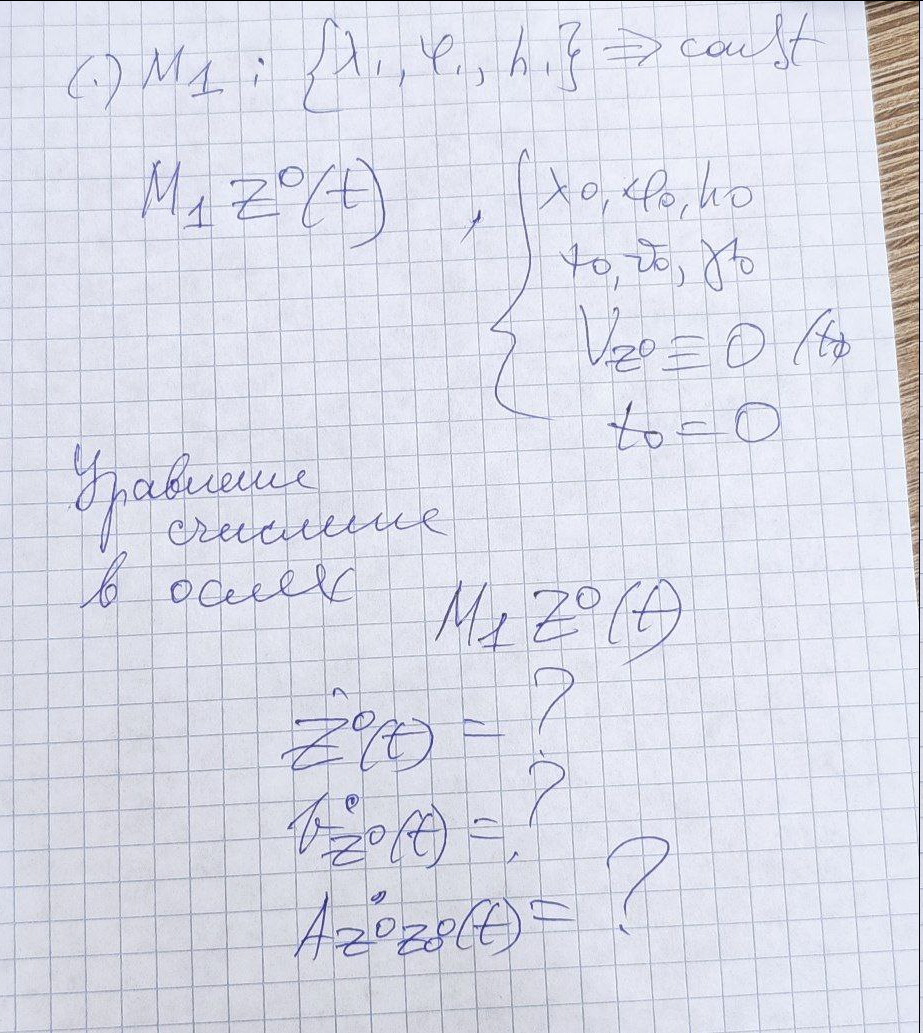 (.) M1 : {λ1, φ1, h1} => const
M1 Z⁰(t) , { λ0, φ0, h0
ψ0, ϑ0, γ0
V_{z⁰} ≡ 0 (t0
t0 = 0
Уравнение
счисление
в осях
M1 Z⁰(t)
Ż⁰(t) = ?
V̇_{z⁰}(t) = ?
Ȧ_{z⁰z0⁰}(t) = ?